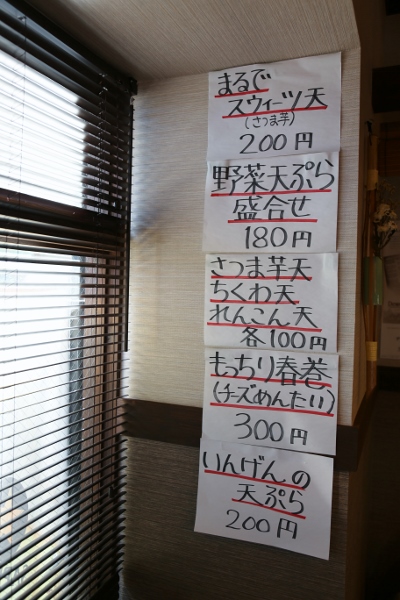 まるで
スウィーツ天
(さつま芋)
200円
野菜天ぷら
盛合せ
180円
さつま芋天
ちくわ天
れんこん天
各100円
もっちり春巻
(チーズめんたい)
300円
いんげんの
天ぷら
200円